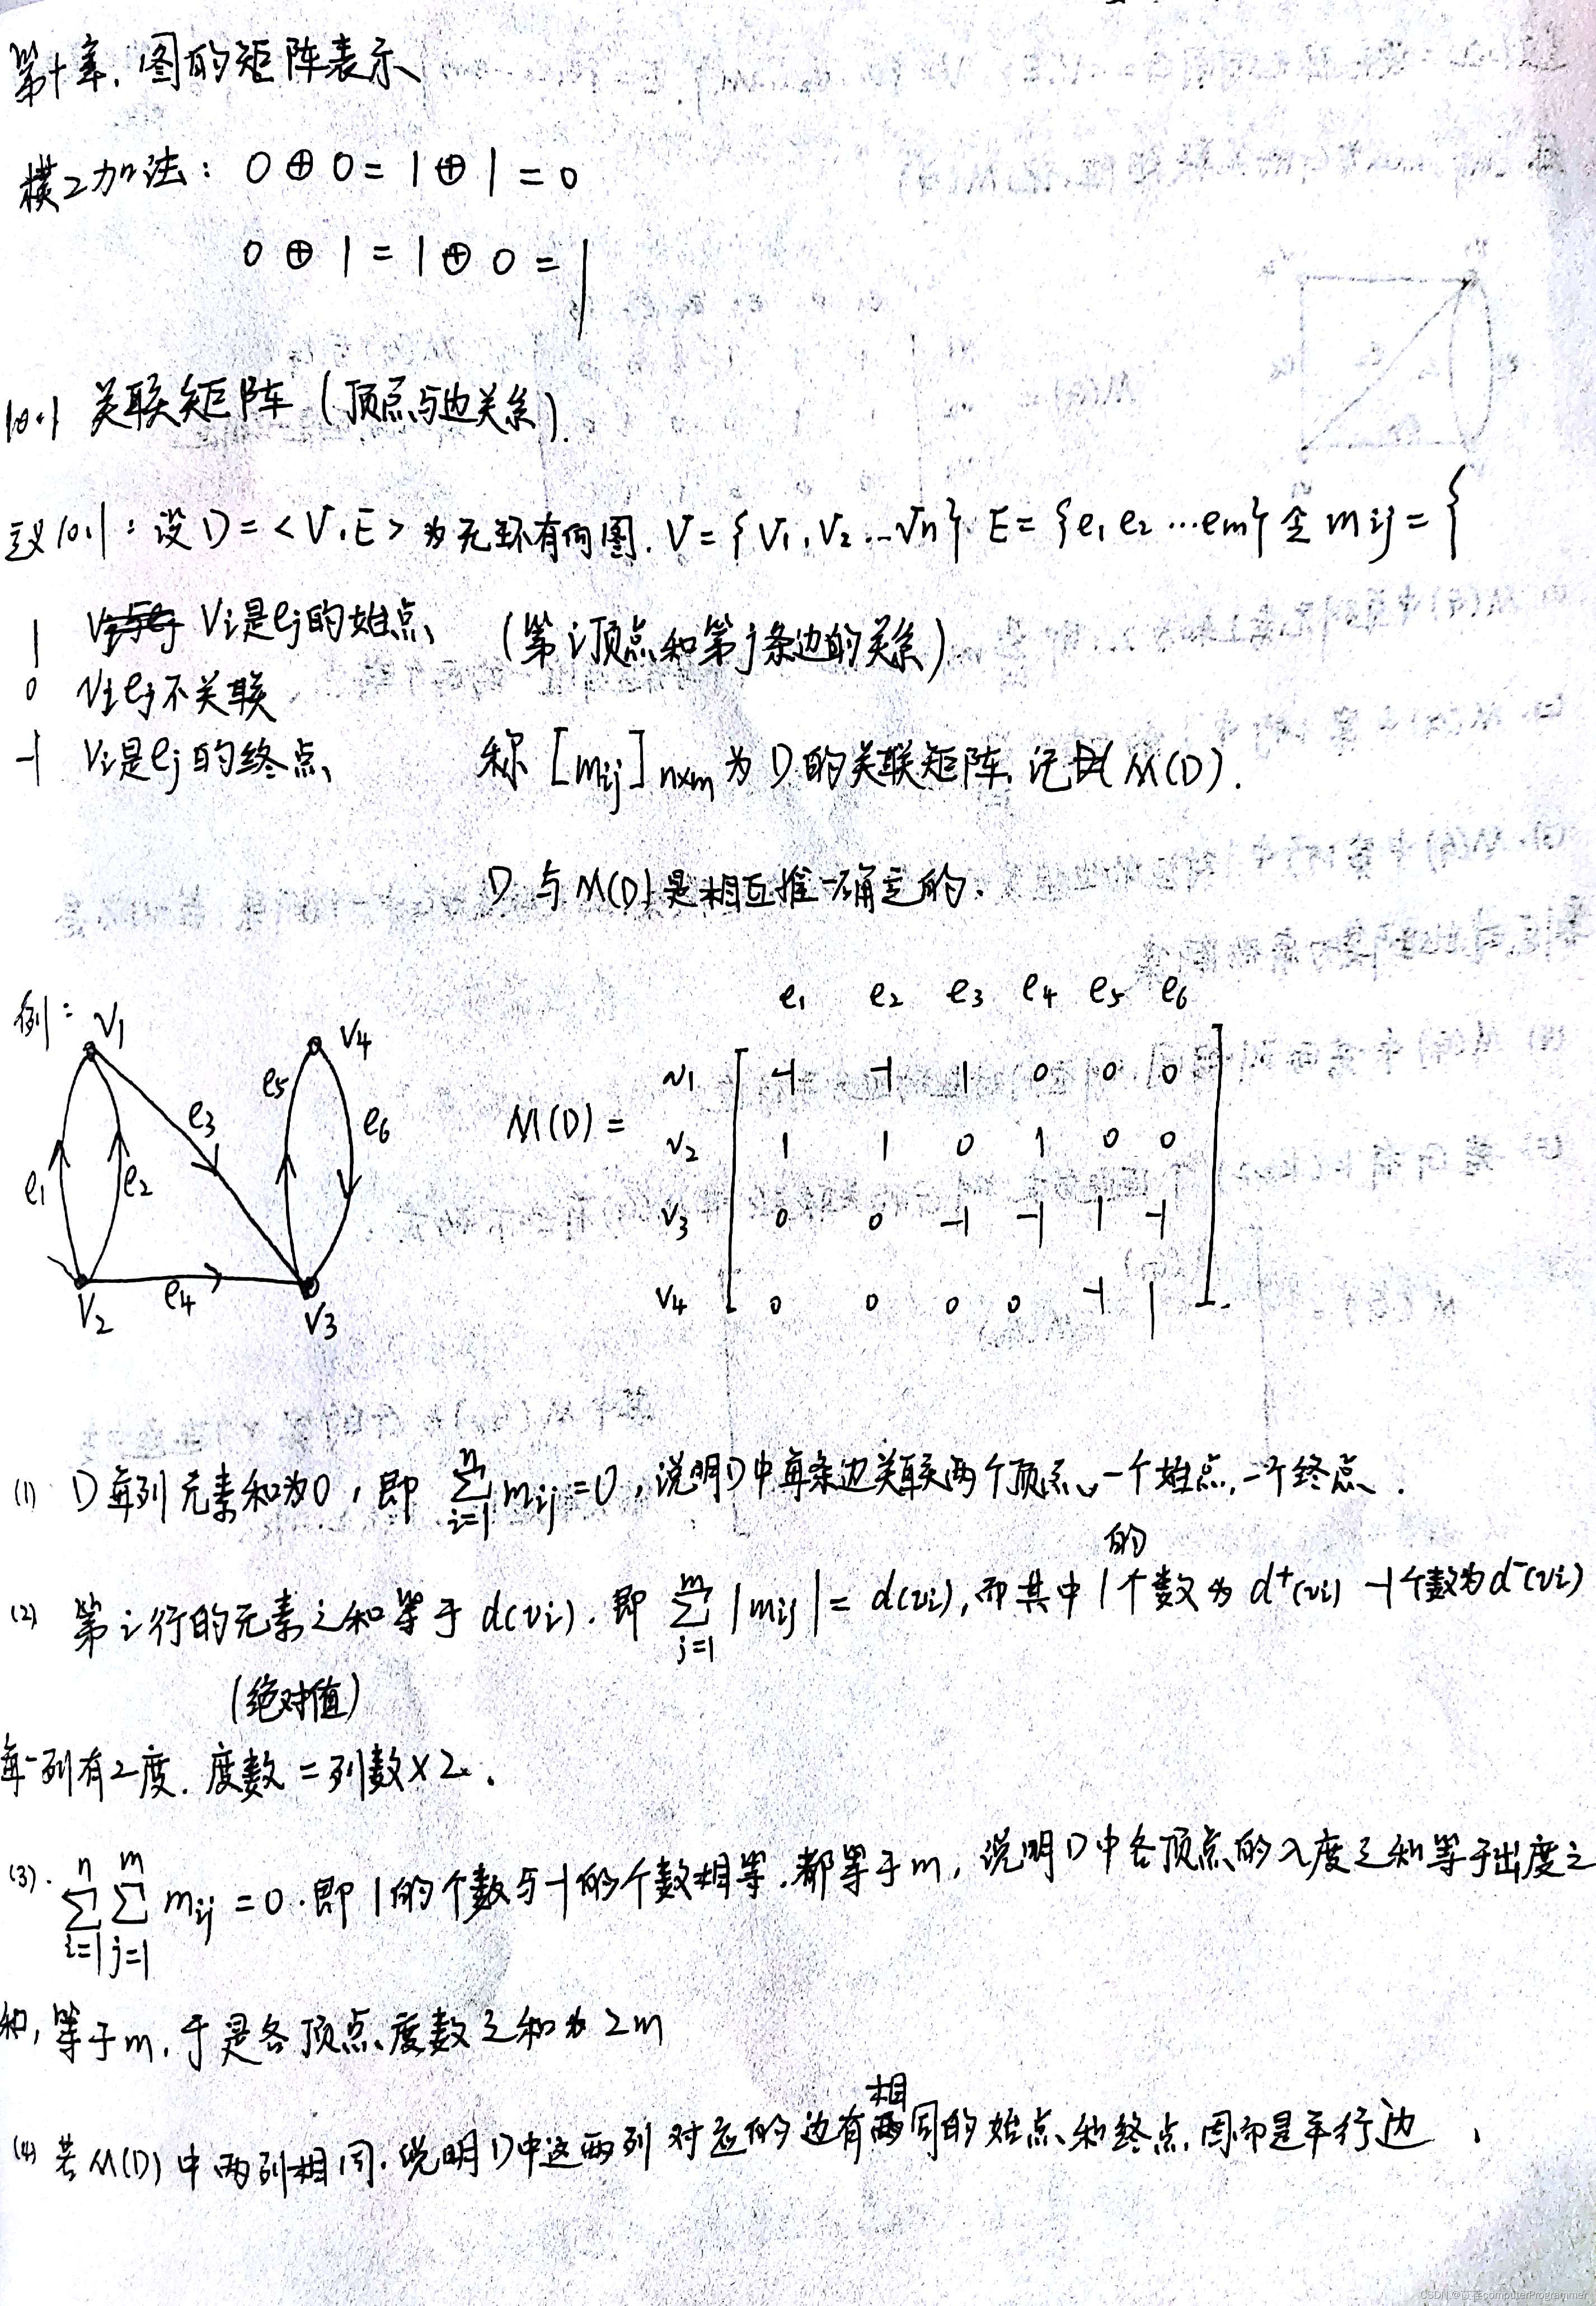 第十章. 图的矩阵表示
模2加法: 0 ⊕ 0 = 1 ⊕ 1 = 0
0 ⊕ 1 = 1 ⊕ 0 = 1
10.1 关联矩阵 (顶点与边关系).
定义10.1: 设 D = <V, E> 为无环有向图. V = {v1, v2 … vn} E = {e1 e2 … em} 令 mij = {
1 vi是ej的始点 (第i顶点和第j条边的关系)
0 vi ej不关联
-1 vi是ej的终点 称 [mij]n×m 为 D 的关联矩阵, 记 M(D).
D 与 M(D) 是相互唯一确定的.
例: v1 v4
e5 e3 e6
e1 e2
v2 e4 v3
e1 e2 e3 e4 e5 e6
v1 -1 -1 1 0 0 0
M(D) = v2 1 1 0 1 0 0
v3 0 0 -1 -1 1 -1
v4 0 0 0 0 -1 1
(1) D 每列元素和为0, 即 ∑i=1^n mij = 0, 说明D中每条边关联两个顶点、一个始点, 一个终点.
(2) 第i行的元素之和等于 d(vi). 即 ∑j=1^m |mij| = d(vi), 而其中 1的个数为 d+(vi) -1个数为 d-(vi)
(绝对值)
每一列有2度. 度数 = 列数×2.
(3). ∑i=1^n ∑j=1^m mij = 0. 即 1的个数与-1的个数相等. 都等于m, 说明D中各顶点的入度之和等于出度之
和, 等于m. 于是各顶点度数之和为 2m
(4) 若 M(D) 中两列相同. 说明D中这两列对应的边有相同的始点和终点, 因而是平行边.